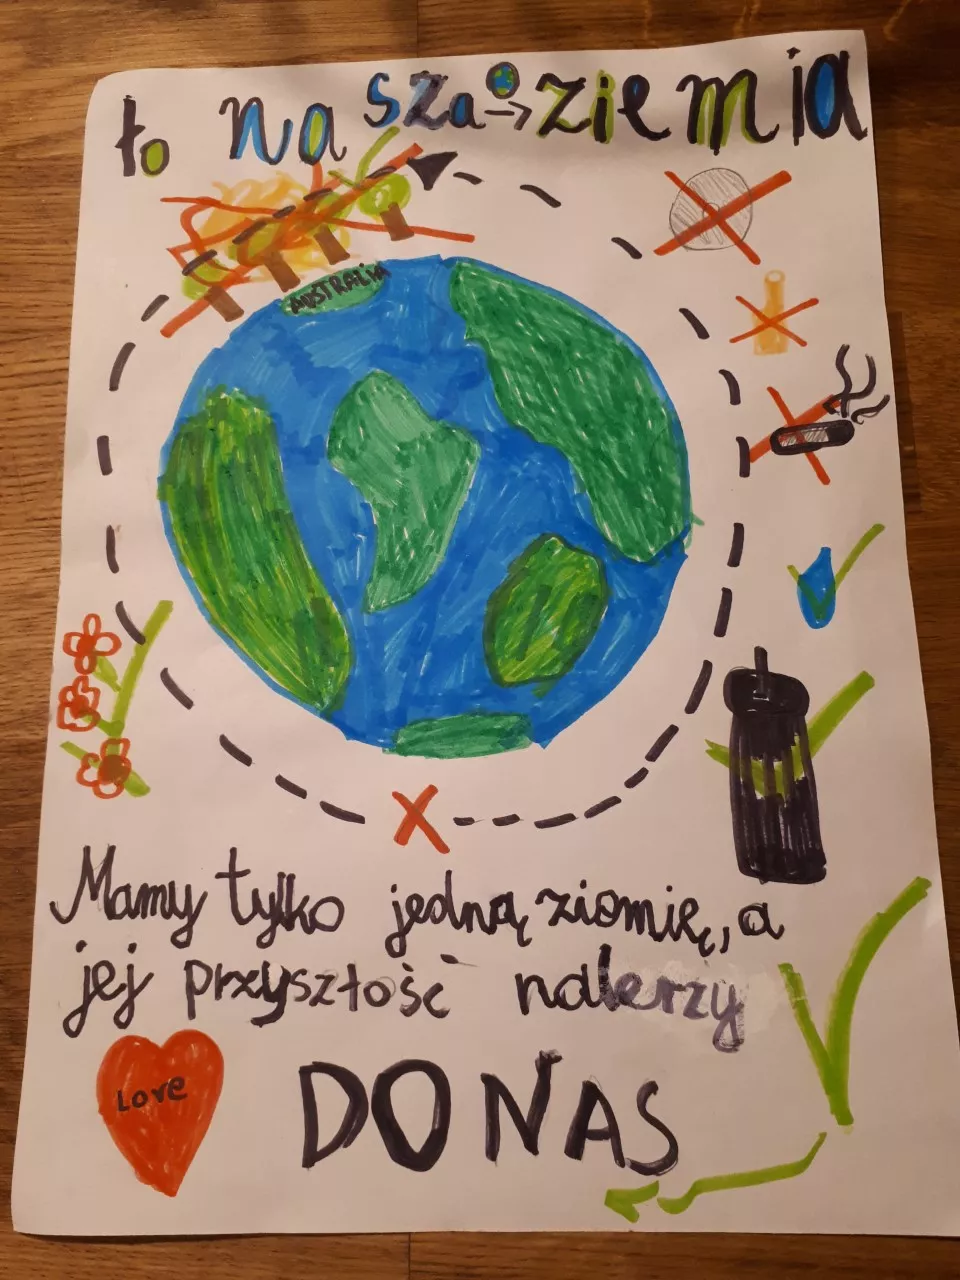 to nasza → ziemia
AUSTRALIA
Mamy tylko jedną ziomię, a
jej przyszłość nalerzy
Love
DO NAS